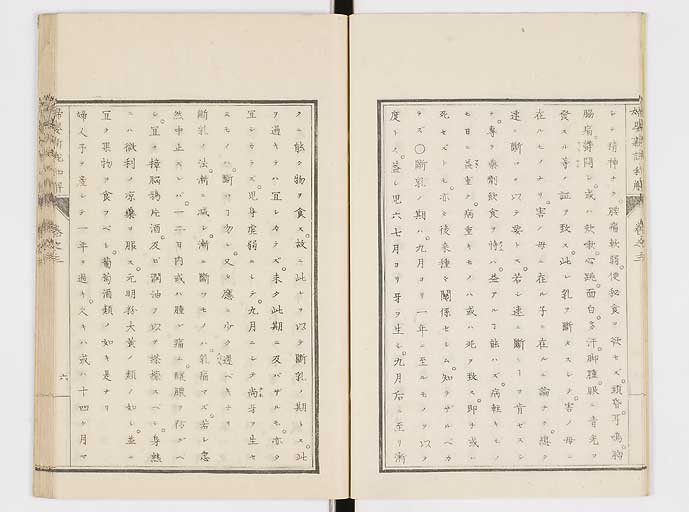 レシ精神ナク腰痛軟弱便秘食ヲ欲セズ頭昏耳鳴胸
腸痛鬱閉シ或ハ欬嗽心跳面白多汗脚腫眼ニ青光ヲ
發スル等ノ証ヲ致ス此レ乳ヲ斷タスシテ害ノ母ニ
在ルモノナリ害ノ母ニ在ル子ニ在ルニ論ナク總テ
速ニ斷ツヲ以テ要トス若シ速ニ斷ヿヲ肯ゼスシ
テ專ラ藥劑飲食ヲ恃ハ益アルヿ能ハズ病輕キモノ
モ日ニ益重ク病重キモノハ或ハ死ヲ致ス即チ或ハ
死セズトモ亦タ後来種々關係セシム知ラザルベカ
ラズ〇斷乳ノ期ハ九月ヨリ一年ニ至ルモノヲ以テ
度トス蓋シ児六七月ヨリ牙ヲ生シ九月后ニ至リ漸
クニ能ク物ヲ食ス故ニ此レヲ以テ斷乳ノ期トス此
ヲ過キハ宜シカラズ未タ此期ニ及バザルモ亦タ
宜シカラズ児身虚弱ニシテ九月ニシテ尚牙ヲ生セ
ズモノハ斷ツヿ勿レ又タ應ニ少ク遅ベキナリ
斷乳ノ法漸ニ減シ漸ニ斷ツモノハ乳痛マズ若シ急
然中止スレバ一二日内或ハ腫レ痛ム醸膿ヲ防グベ
シ宜ク樟腦鴉片酒及ビ潤油ヲ以テ搽擦スベシ專熟
ニハ微利ノ凉藥ヲ服ス元明粉大黄ノ類ノ如シ並ニ
宜ク菓物ヲ食フベシ葡萄酒類ノ如キ是ナリ
婦人子ヲ産シテ一年ヲ過キ久キハ或ハ十四ケ月マ
六